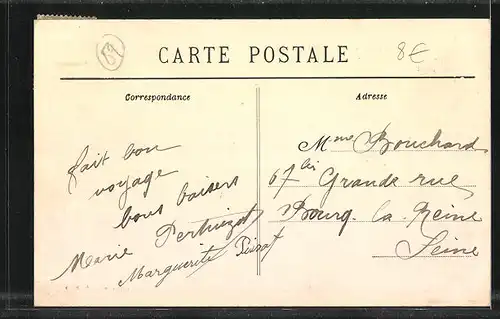 69
CARTE POSTALE
8€
Correspondance
Adresse
fait bon
voyage
bons baisers
Marie
Marguerite
Mme Bouchard
67 bis Grande rue
Bourg-la-Reine
Seine